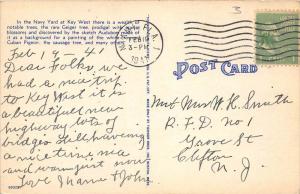 In the Navy Yard at Key West there is a wealth of
notable trees, the rare Geiger tree, prodigal with gorgeous
blossoms and discovered by the sketch Audubon made of
it as a background for a painting of the white-crowned
Cuban Pigeon, the sausage tree, and many others.
3
FLA.
FEB 19
3-PM
Feb 18 - 41
Dear Folks, we
had a nice trip
to Key West it is
a beautiful new
highway lots of
bridges still having
a nice time, nice
and warm just now
Love Mame + John
POST CARD
Mr + Mrs W. H. Smith
R. F. D. no 1
Grove St
Clifton
N. J.